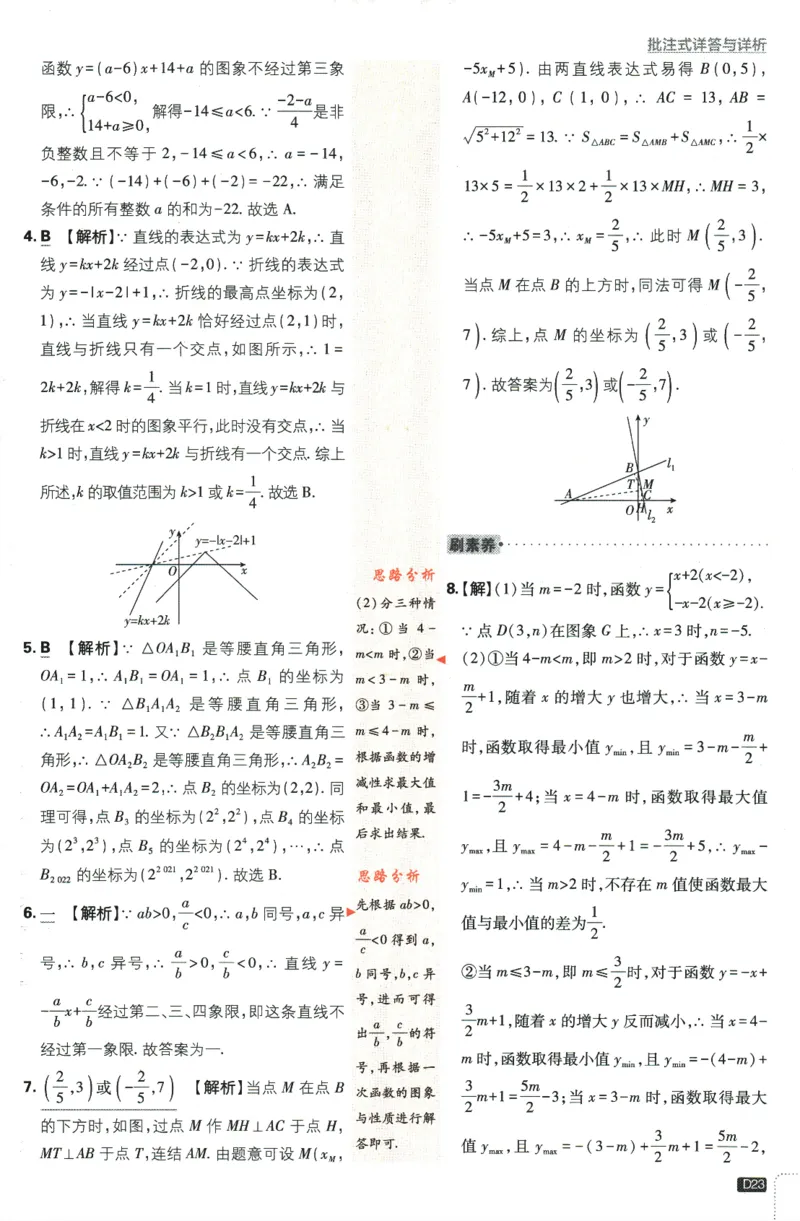 批注式详答与详析
函数 y=(a-6)x+14+a 的图象不经过第三象
限,∴ {a-6<0, 14+a≥0, 解得-14≤a<6. ∵ (-2-a)/4 是非
负整数且不等于 2,-14≤a<6,∴ a=-14,
-6,-2. ∵ (-14)+(-6)+(-2)=-22,∴ 满足
条件的所有整数 a 的和为-22. 故选 A.
4. B 【解析】∵ 直线的表达式为 y=kx+2k,∴ 直
线 y=kx+2k 经过点(-2,0). ∵ 折线的表达式
为 y=-|x-2|+1,∴ 折线的最高点坐标为(2,
1),∴ 当直线 y=kx+2k 恰好经过点(2,1)时,
直线与折线只有一个交点,如图所示,∴ 1=
2k+2k,解得 k=1/4. 当 k=1 时,直线 y=kx+2k 与
折线在 x<2 时的图象平行,此时没有交点,∴ 当
k>1 时,直线 y=kx+2k 与折线有一个交点. 综上
所述,k 的取值范围为 k>1 或 k=1/4. 故选 B.
y
y=-|x-2|+1
O
x
y=kx+2k
5. B 【解析】∵ △OA₁B₁ 是等腰直角三角形,
OA₁=1,∴ A₁B₁=OA₁=1,∴ 点 B₁ 的坐标为
(1,1). ∵ △B₁A₁A₂ 是等腰直角三角形,
∴ A₁A₂=A₁B₁=1. 又∵ △B₂B₁A₂ 是等腰直角三
角形,∴ △OA₂B₂ 是等腰直角三角形,∴ A₂B₂=
OA₂=OA₁+A₁A₂=2,∴ 点 B₂ 的坐标为(2,2). 同
理可得,点 B₃ 的坐标为(2²,2²),点 B₄ 的坐标
为(2³,2³),点 B₅ 的坐标为(2⁴,2⁴),…,∴ 点
B₂₀₂₂ 的坐标为(2²⁰²¹,2²⁰²¹). 故选 B.
6. 一 【解析】∵ ab>0,a/c<0,∴ a,b 同号,a,c 异
号,∴ b,c 异号,∴ a/b>0,c/b<0,∴ 直线 y=
-a/b x+c/b 经过第二、三、四象限,即这条直线不
经过第一象限. 故答案为一.
7. (2/5,3)或(-2/5,7) 【解析】当点 M 在点 B
的下方时,如图,过点 M 作 MH⊥AC 于点 H,
MT⊥AB 于点 T,连结 AM. 由题意可设 M(x_M,
思路分析
(2)分三种情
况:①当 4-
m<m 时,②当
m<3-m 时,
③当 3-m≤
m≤4-m 时,
根据函数的增
减性求最大值
和最小值,最
后求出结果.
思路分析
先根据 ab>0,
a/c<0 得到 a,
b 同号,b,c 异
号,进而可得
出 a/b,c/b 的符
号,再根据一
次函数的图象
与性质进行解
答即可.
-5x_M+5). 由两直线表达式易得 B(0,5),
A(-12,0), C(1,0),∴ AC=13, AB=
√(5²+12²)=13. ∵ S△ABC=S△AMB+S△AMC,∴ 1/2×
13×5=1/2×13×2+1/2×13×MH,∴ MH=3,
∴ -5x_M+5=3,∴ x_M=2/5,∴ 此时 M(2/5,3).
当点 M 在点 B 的上方时,同法可得 M(-2/5,
7). 综上,点 M 的坐标为 (2/5,3) 或 (-2/5,
7). 故答案为(2/5,3)或(-2/5,7).
y
B
l₁
T
M
A
C
O
H
l₂
x
刷素养
8.【解】(1)当 m=-2 时,函数 y={x+2(x<-2), -x-2(x≥-2).
∵ 点 D(3,n)在图象 G 上,∴ x=3 时,n=-5.
(2)①当 4-m<m,即 m>2 时,对于函数 y=x-
m/2+1,随着 x 的增大 y 也增大,∴ 当 x=3-m
时,函数取得最小值 y_min,且 y_min=3-m-m/2+
1=-3m/2+4;当 x=4-m 时,函数取得最大值
y_max,且 y_max=4-m-m/2+1=-3m/2+5,∴ y_max-
y_min=1,∴ 当 m>2 时,不存在 m 值使函数最大
值与最小值的差为1/2.
②当 m≤3-m,即 m≤3/2时,对于函数 y=-x+
3/2 m+1,随着 x 的增大 y 反而减小,∴ 当 x=4-
m 时,函数取得最小值 y_min,且 y_min=-(4-m)+
3/2 m+1=5m/2-3;当 x=3-m 时,函数取得最大
值 y_max,且 y_max=-(3-m)+3/2 m+1=5m/2-2,
D23